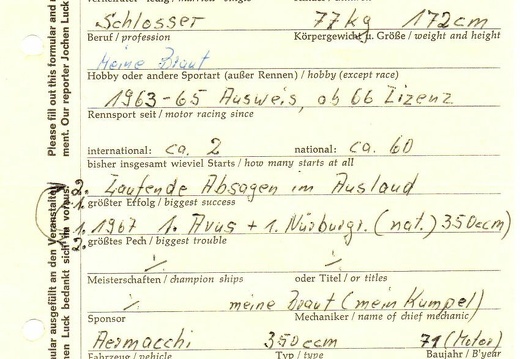 Schlosser 77kg 172cm
Beruf / profession Körpergewicht u. Größe / weight and height
Meine Braut
Hobby oder andere Sportart (außer Rennen) / hobby (except race)
1963-65 Ausweis, ab 66 Lizenz
Rennsport seit / motor racing since
international: ca. 2 national: ca. 60
bisher insgesamt wieviel Starts / how many starts at all
2. Laufende Absagen im Ausland
1. größter Erfolg / biggest success
1. 1967 1. Avus + 1. Nürburgr. (nat.) 350ccm)
2. größtes Pech / biggest trouble
./. ./.
Meisterschaften / champion ships oder Titel / or titles
./. meine Braut (mein Kumpel)
Sponsor Mechaniker / name of chief mechanic
Aermacchi 350ccm 71 (Motor)
Fahrzeug / vehicle Typ / type Baujahr / B'year
Please fill out this formular and
ment. Our reporter Jochen Luck
ular ausgefüllt an den Veranstalter
hen Luck bedankt sich im voraus.